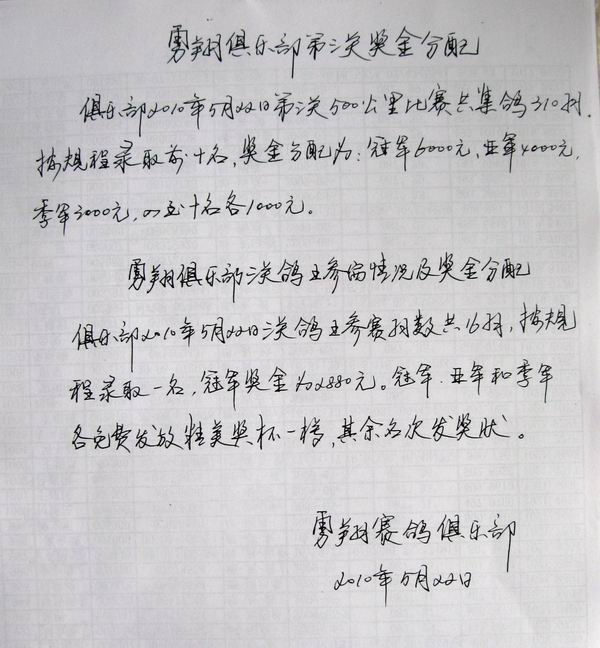 勇翔俱乐部第二关奖金分配
俱乐部2010年5月22日第二关500公里比赛共集鸽310羽.
按规程录取前十名,奖金分配为:冠军6000元,亚军4000元,
季军3000元,四至十名各1000元。
勇翔俱乐部二关鸽王参赛情况及奖金分配
俱乐部2010年5月22日二关鸽王参赛羽数共16羽,按规
程录取一名,冠军奖金为2880元。冠军.亚军和季军
各免费发放精美奖杯一樽,其余名次发奖状。
勇翔赛鸽俱乐部
2010年5月22日